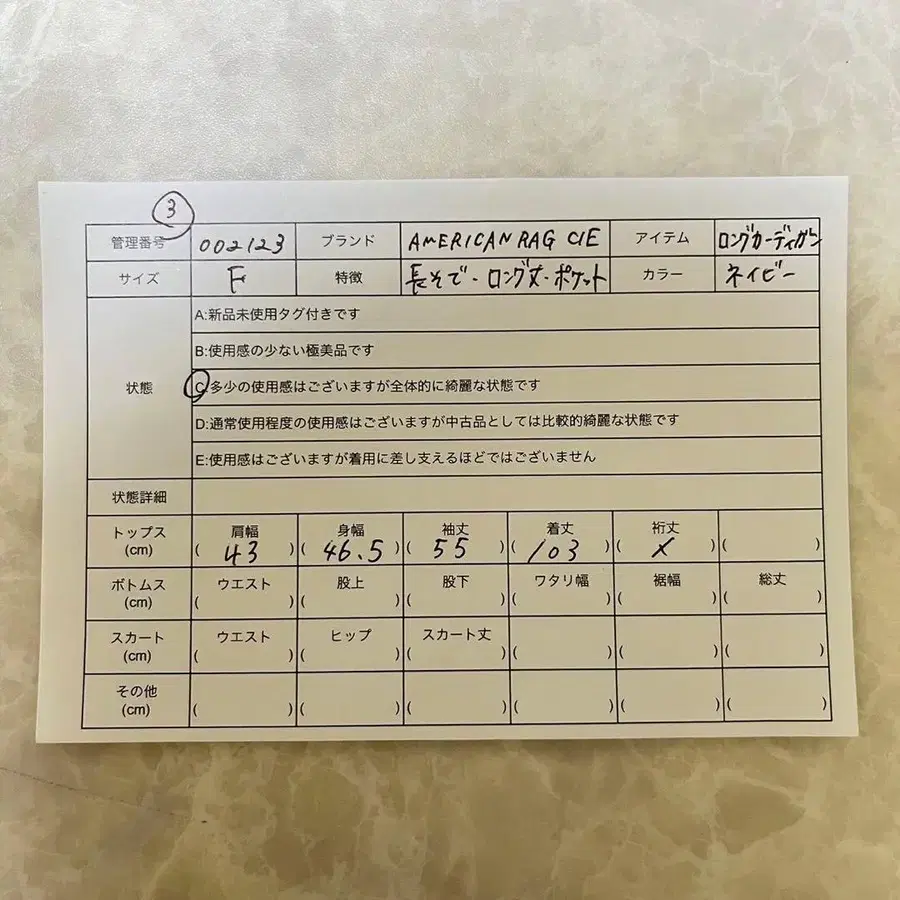 3
管理番号 002123 ブランド AMERICAN RAG CIE アイテム ロングカーディガン
サイズ F 特徴 長そで・ロング丈・ポケット カラー ネイビー
状態
A:新品未使用タグ付きです
B:使用感の少ない極美品です
C:多少の使用感はございますが全体的に綺麗な状態です
D:通常使用程度の使用感はございますが中古品としては比較的綺麗な状態です
E:使用感はございますが着用に差し支えるほどではございません
状態詳細
トップス 肩幅 身幅 袖丈 着丈 裄丈
(cm) ( 43 ) ( 46.5 ) ( 55 ) ( 103 ) ( x ) ( )
ボトムス ウエスト 股上 股下 ワタリ幅 裾幅 総丈
(cm) ( ) ( ) ( ) ( ) ( ) ( )
スカート ウエスト ヒップ スカート丈
(cm) ( ) ( ) ( ) ( ) ( ) ( )
その他
(cm) ( ) ( ) ( ) ( ) ( ) ( )